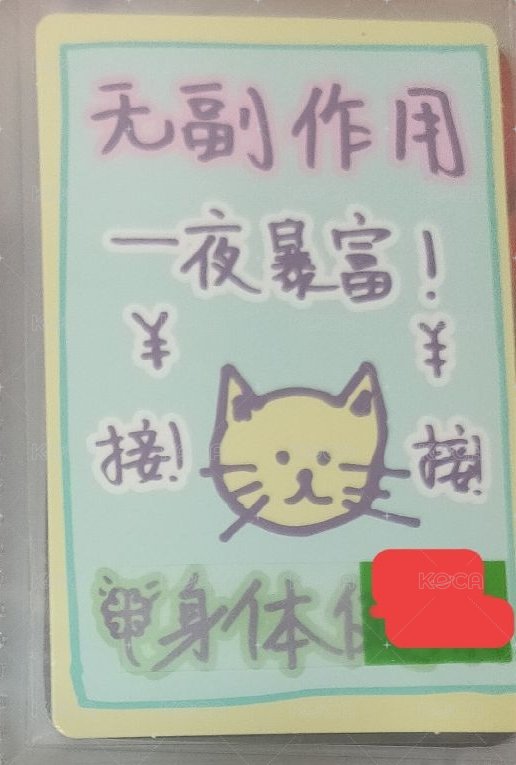 无副作用
一夜暴富!
¥ ¥
接! 接!
身体
KOCA